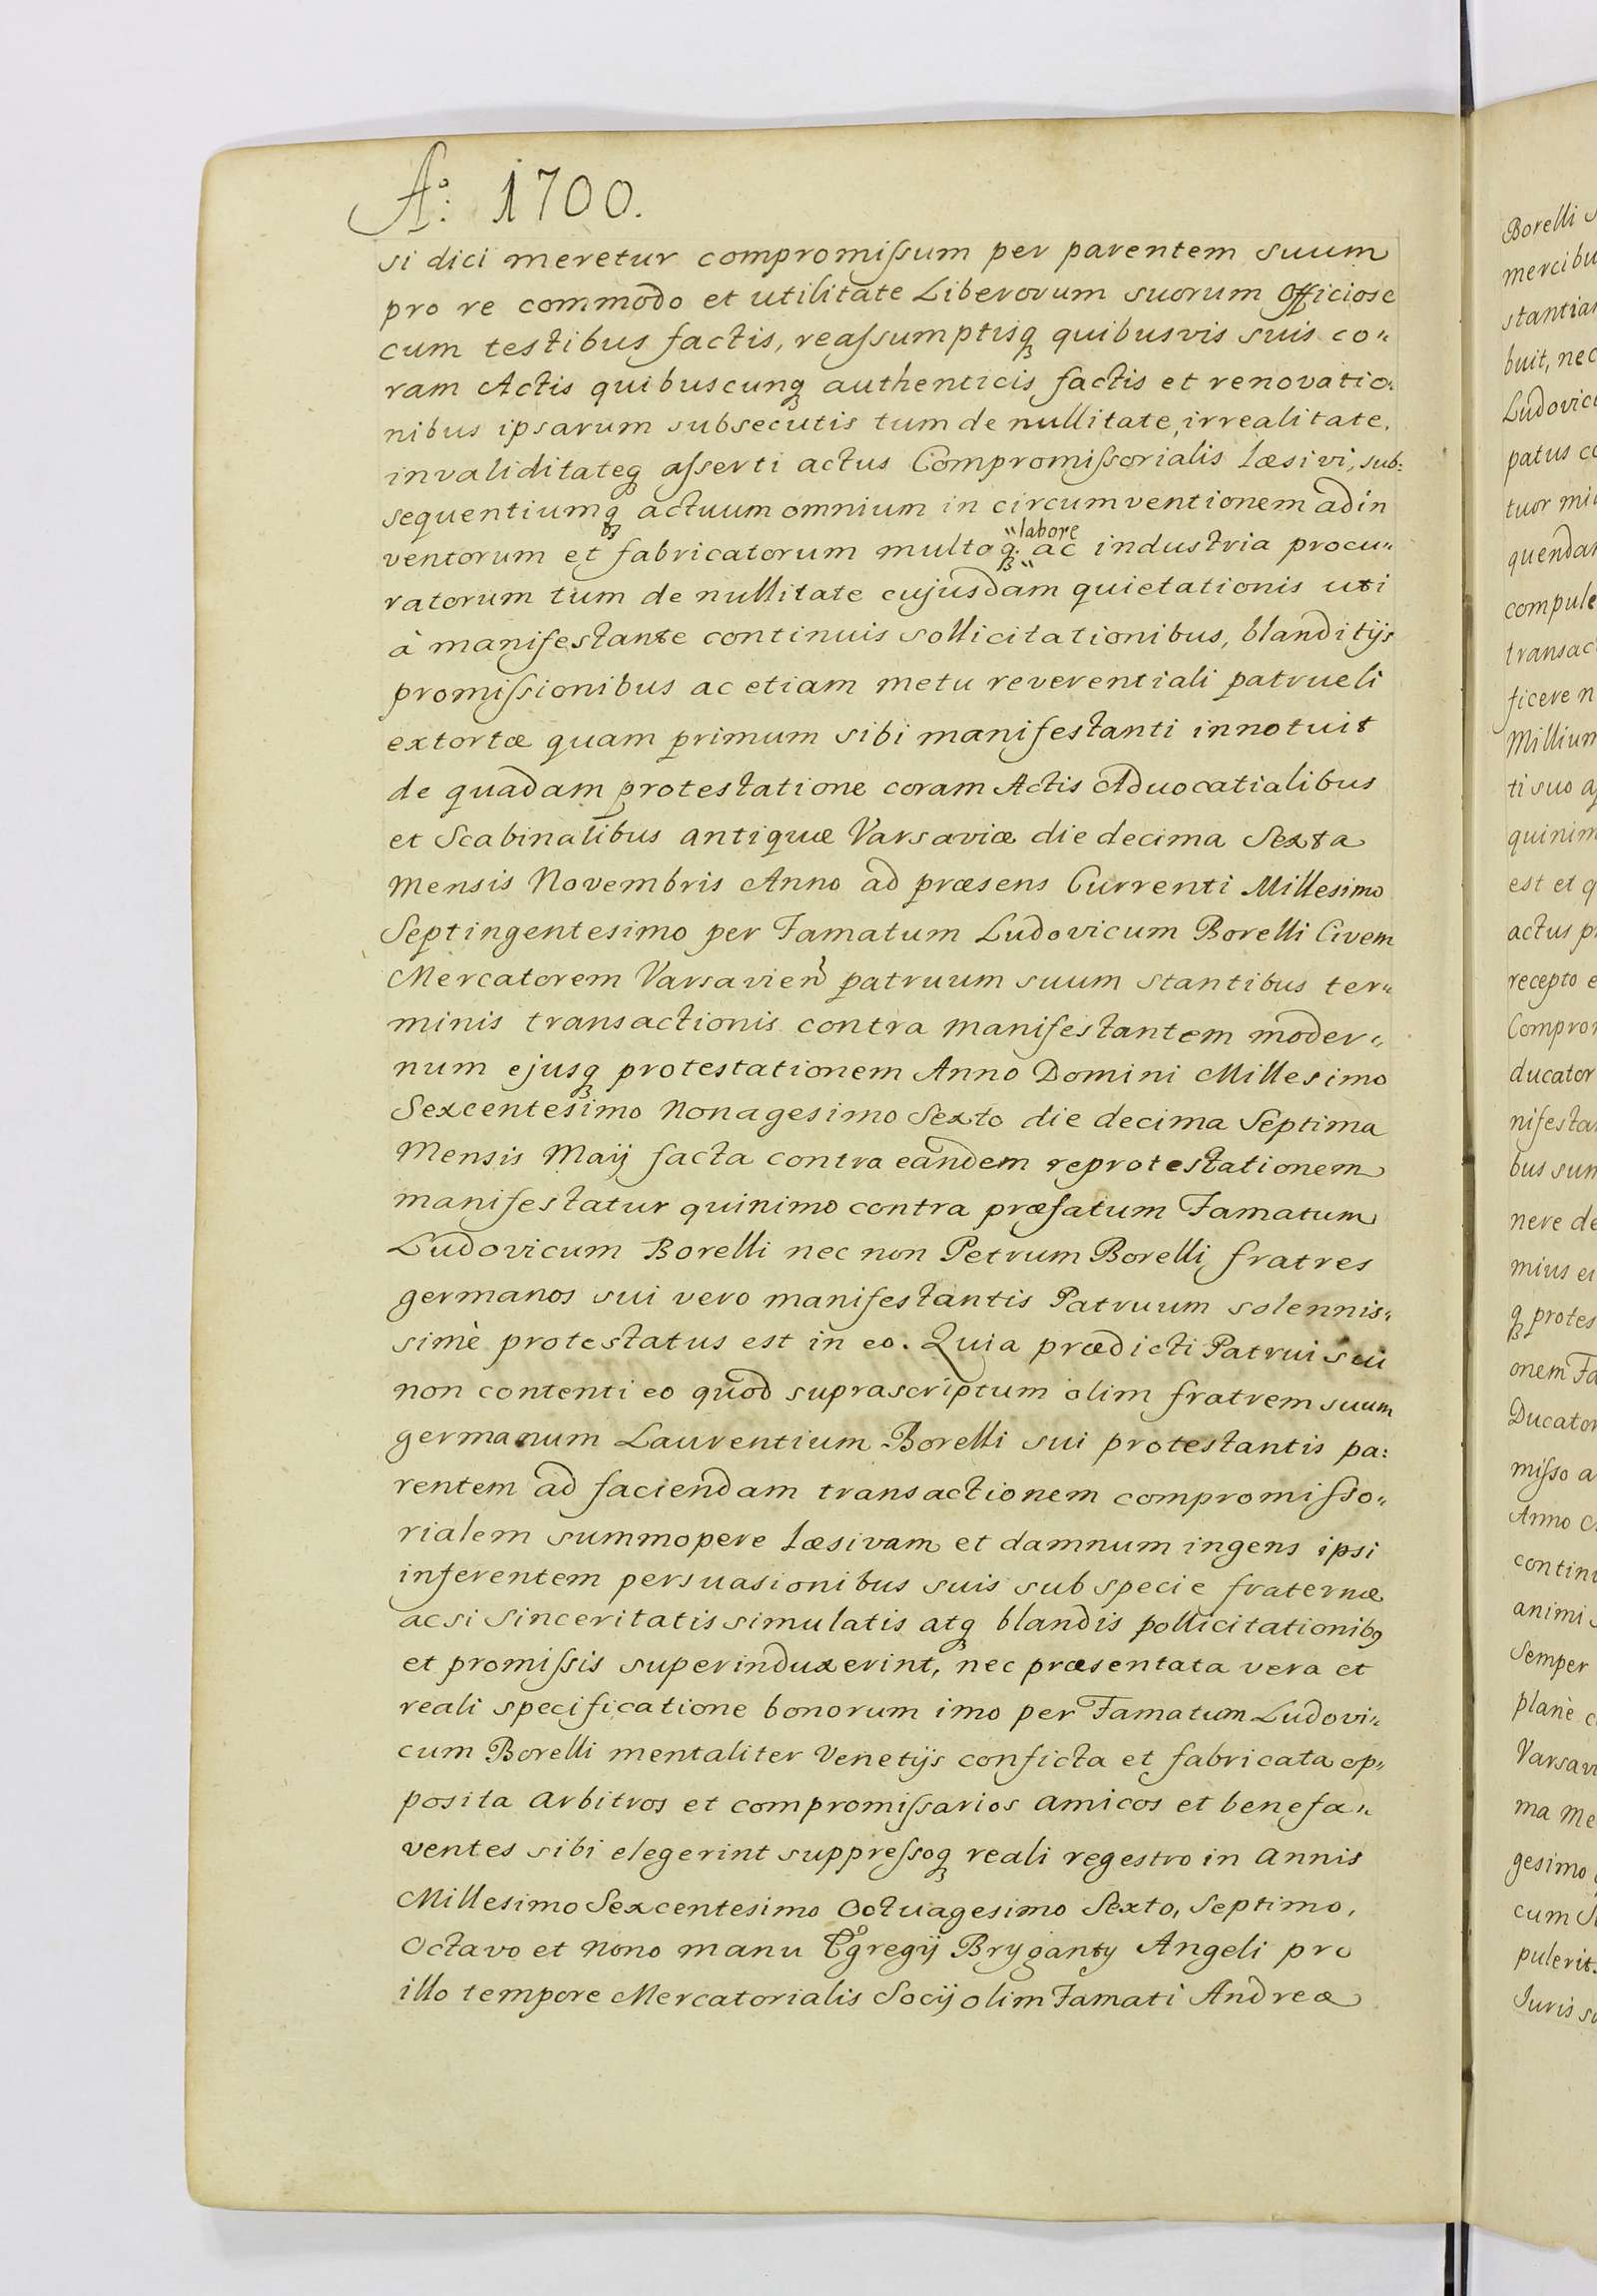 Aº: 1700.
si dici meretur compromiſsum per parentem suum
pro re commodo et utilitate Liberorum suorum Officiose
cum testibus factis, reaſsumptisq quibusvis suis co„
ram Actis quibuscunq authenticis factis et renovatio„
nibus ipsarum subsecutis tum de nullitate, irrealitate,
invaliditateq aſserti actus Compromiſsorialis læsivi, sub:
sequentiumq actuum omnium in circumventionem adin
„labore
ventorum et fabricatorum multoq. ac industria procu„
ratorum tum de nullitate cujusdam quietationis uti
à manifestante continuis sollicitationibus, blanditijs
promiſsionibus ac etiam metu reverentiali patrueli
extortæ quam primum sibi manifestanti innotuit
de quadam protestatione coram Actis Aduocatialibus
et Scabinalibus antiquæ Varsaviæ die decima Sexta
Mensis Novembris Anno ad præsens Currenti Millesimo
Septingentesimo per Famatum Ludovicum Borelli Civem
Mercatorem Varsavien patruum suum stantibus ter„
minis transactionis contra manifestantem moder„
num ejusq protestationem Anno Domini Millesimo
Sexcentesimo Nonagesimo Sexto die decima Septima
Mensis Maij facta contra eandem reprotestationem
manifestatur quinimo contra præfatum Famatum
Ludovicum Borelli nec non Petrum Borelli fratres
germanos sui vero manifestantis Patruum solennis„
simè protestatus est in eo. Quia prædicti Patrui sui
non contenti eo quod suprascriptum olim fratrem suum
germanum Laurentium Borelli sui protestantis pa:
rentem ad faciendam transactionem compromiſso„
rialem summopere læsivam et damnum ingens ipsi
inferentem persuasionibus suis sub specie fraternæ
ac si Sinceritatis simulatis atq blandis pollicitationibꝯ
et promiſsis superinduxerint, nec præsentata vera et
reali specificatione bonorum imo per Famatum Ludovi„
cum Borelli mentaliter Venetijs conficta et fabricata op„
posita Arbitros et compromiſsarios amicos et benefa„
ventes sibi elegerint suppreſsoq reali regestro in Annis
Millesimo Sexcentesimo Octuagesimo Sexto, Septimo,
Octavo et Nono manu Egregij Bryganty Angeli pro
illo tempore Mercatorialis Socij olim Famati Andreæ
Borelli
stantia
buit, nec
patus
compule
ficere
Millium
ti suo
est et
recepto
ducator
nere
mius
protes
Ducator
Anno
animi
Semper
planè
gesimo
cum
pulerit
Iuris